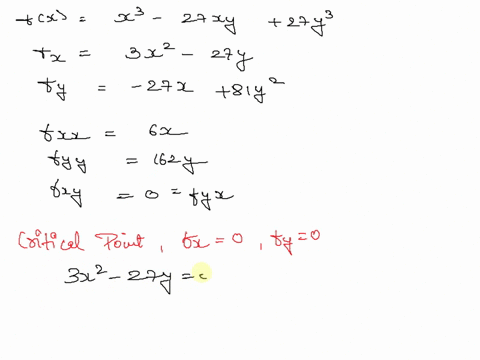 f(x) = x³ - 27xy + 27y³
fx = 3x² - 27y
fy = -27x + 81y²
fxx = 6x
fyy = 162y
fxy = 0 = fyx
Critical Point, fx = 0, fy = 0
3x² - 27y =